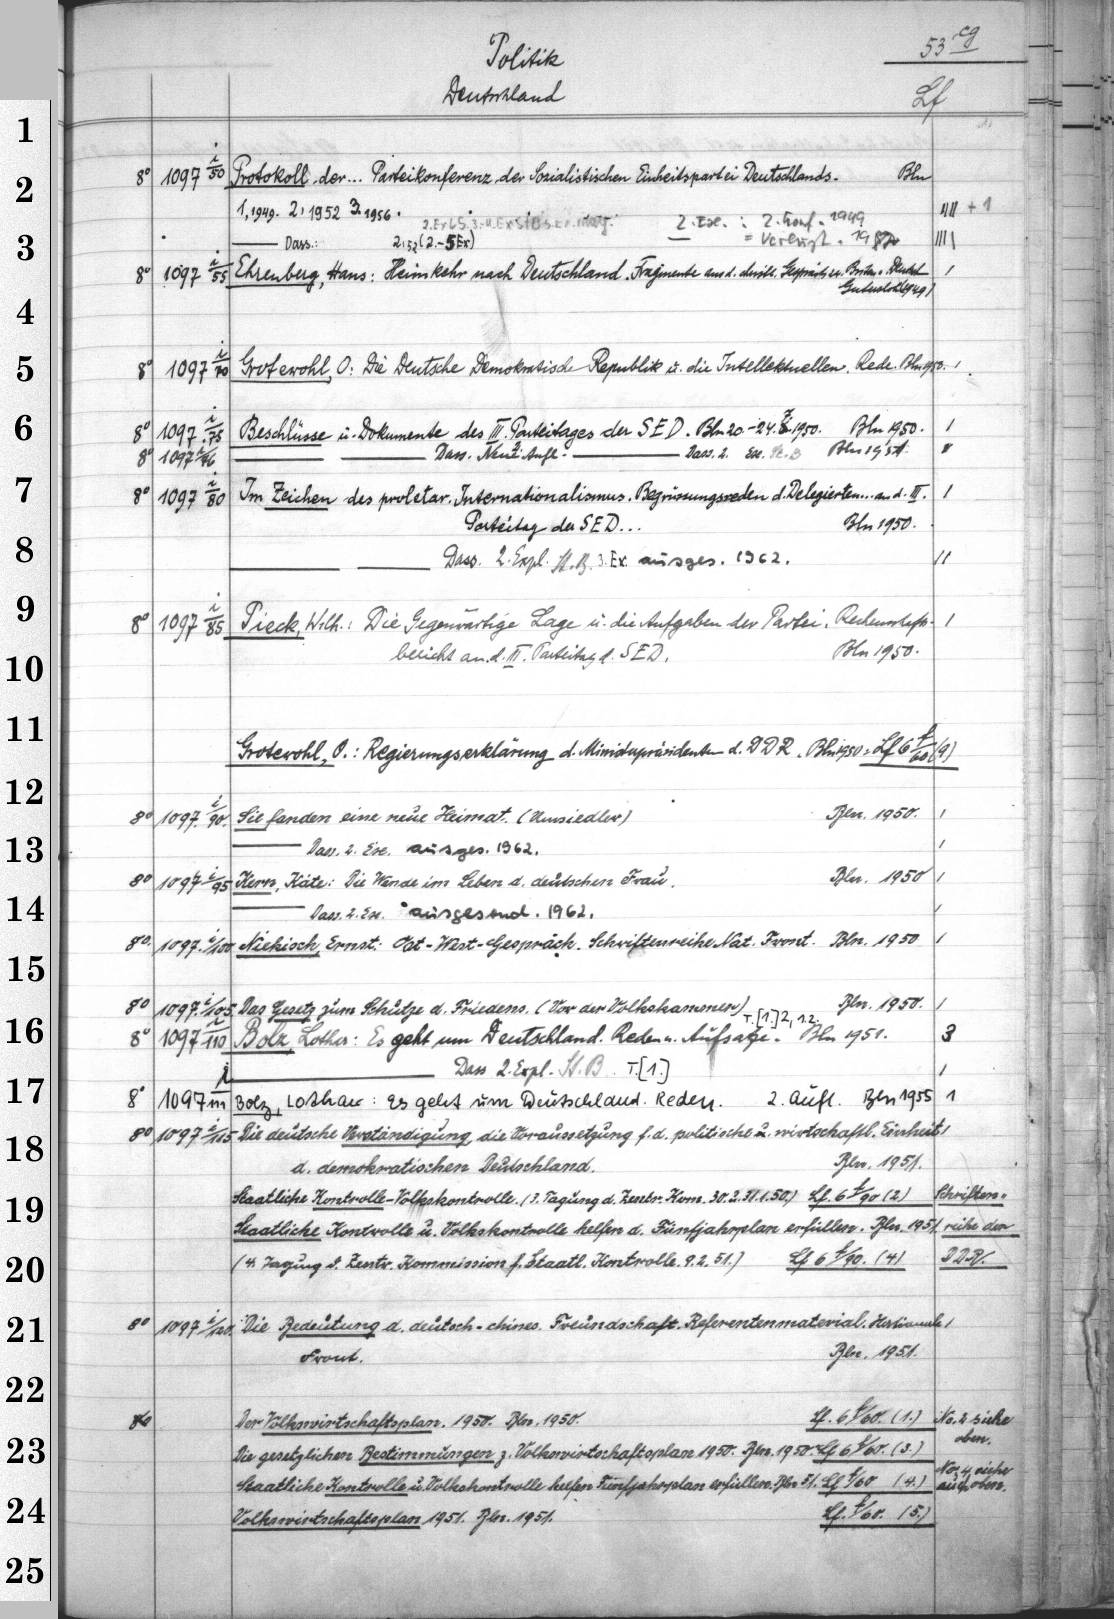 Politik
53 cg
Deutschland
Lf
1
8° 1097 i/50 Protokoll der... Parteikonferenz der Sozialistischen Einheitspartei Deutschlands. Bln
2
1, 1949. 2, 1952 3. 1956. + 1
3
Dass.: 2, 52 (2.-5 Ex) 2. Exe. : 2. Konf. 1949
8° 1097 i/55 Ehrenberg, Hans: Heimkehr nach Deutschland. Fragmente
4
5
8° 1097 i/70 Grotewohl, O: Die Deutsche Demokratische Republik u. die Intellektuellen. Rede. Bln 1950.
6
8° 1097 i/75 Beschlüsse u. Dokumente des III. Parteitages der SED. Bln 20.-24. 7. 1950. Bln 1950.
8° 1097 Dass. 2. Aufl. Dass. 2. Exe. Bln 1951.
7
8° 1097 i/80 Im Zeichen des proletar. Internationalismus. Begrüssungsreden d. Delegierten... an d. III.
Parteitag der SED... Bln 1950.
8
Dass. 2. Expl. St. B. 3. Ex. ausges. 1962.
9
8° 1097 i/85 Pieck, Wilh.: Die Gegenwärtige Lage u. die Aufgaben der Partei. Rechenschafts-
10
bericht an. d. III. Parteitag d. SED. Bln 1950.
11
Grotewohl, O.: Regierungserklärung d. Ministerpräsidenten d. DDR. Bln 1950 = Lf 6 t/60 (9)
12
8° 1097. i/90. Sie fanden eine neue Heimat. (Umsiedler) Bln. 1950.
13
Dass. 2. Exe. ausges. 1962.
8° 1097 i/95 Kern, Käte: Die Wende im Leben d. deutschen Frau. Bln. 1950
14
Dass. 2. Exe. ausgesond. 1962.
8° 1097. i/100 Niekisch, Ernst: Ost-West-Gespräch. Schriftenreihe Nat. Front. Bln. 1950
15
8° 1097. i/105. Das Gesetz zum Schutze d. Friedens. (Vor der Volkskammer) Bln. 1950.
T. [1.] 2, 1.2.
16
8° 1097 i/110 Bolz, Lothar: Es geht um Deutschland. Reden u. Aufsätze. Bln 1951. 3
Dass 2. Expl. St. B. T. [1.]
17
8° 1097 i/111 Bolz, Lothar: Es geht um Deutschland. Reden. 2. Aufl. Bln 1955 1
8° 1097 i/115 Die deutsche Verständigung, die Voraussetzung f. d. politische u. wirtschaftl. Einheit
18
d. demokratischen Deutschland. Bln. 1951.
Staatliche Kontrolle-Volkskontrolle. (3. Tagung d. Zentr. Kom. 30. 31. 1. 50.) Lf. 6 t/90 (2) Schriften-
19
Staatliche Kontrolle u. Volkskontrolle helfen d. Fünfjahrplan erfüllen. Bln. 1951. reihe der
20
(4. Tagung d. Zentr. Kommission f. Staatl. Kontrolle 9. 2. 51.) Lf 6 t/90. (4) DDR.
21
8° 1097 i/120. Die Bedeutung d. deutsch-chines. Freundschaft. Referentenmaterial. Nationale
Front. Bln. 1951.
22
8° Der Volkswirtschaftsplan. 1950. Bln. 1950. Lf. 6 t/60. (1.) No. 2 siehe
oben.
23
Die gesetzlichen Bestimmungen z. Volkswirtschaftsplan 1950. Bln. 1950. Lf 6 t/60. (3.)
Staatliche Kontrolle u. Volkskontrolle helfen Fünfjahrplan erfüllen. Bln 51. Lf t/60 (4.) No. 4 siehe
auch oben.
24
Volkswirtschaftsplan 1951. Bln. 1951. Lf. t/60. (5.)
25